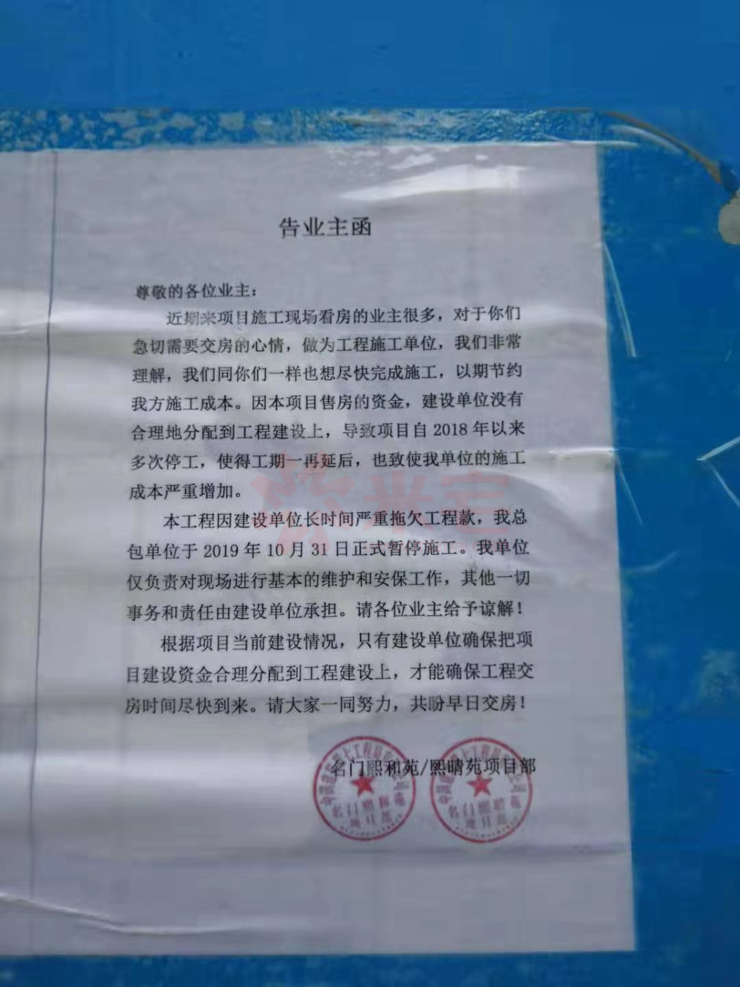 告业主函
尊敬的各位业主：
近期来项目施工现场看房的业主很多，对于你们
急切需要交房的心情，做为工程施工单位，我们非常
理解，我们同你们一样也想尽快完成施工，以期节约
我方施工成本。因本项目售房的资金，建设单位没有
合理地分配到工程建设上，导致项目自 2018 年以来
多次停工，使得工期一再延后，也致使我单位的施工
成本严重增加。
本工程因建设单位长时间严重拖欠工程款，我总
包单位于 2019 年 10 月 31 日正式暂停施工。我单位
仅负责对现场进行基本的维护和安保工作，其他一切
事务和责任由建设单位承担。请各位业主给予谅解！
根据项目当前建设情况，只有建设单位确保把项
目建设资金合理分配到工程建设上，才能确保工程交
房时间尽快到来。请大家一同努力，共盼早日交房！
名门熙和苑/熙晴苑项目部